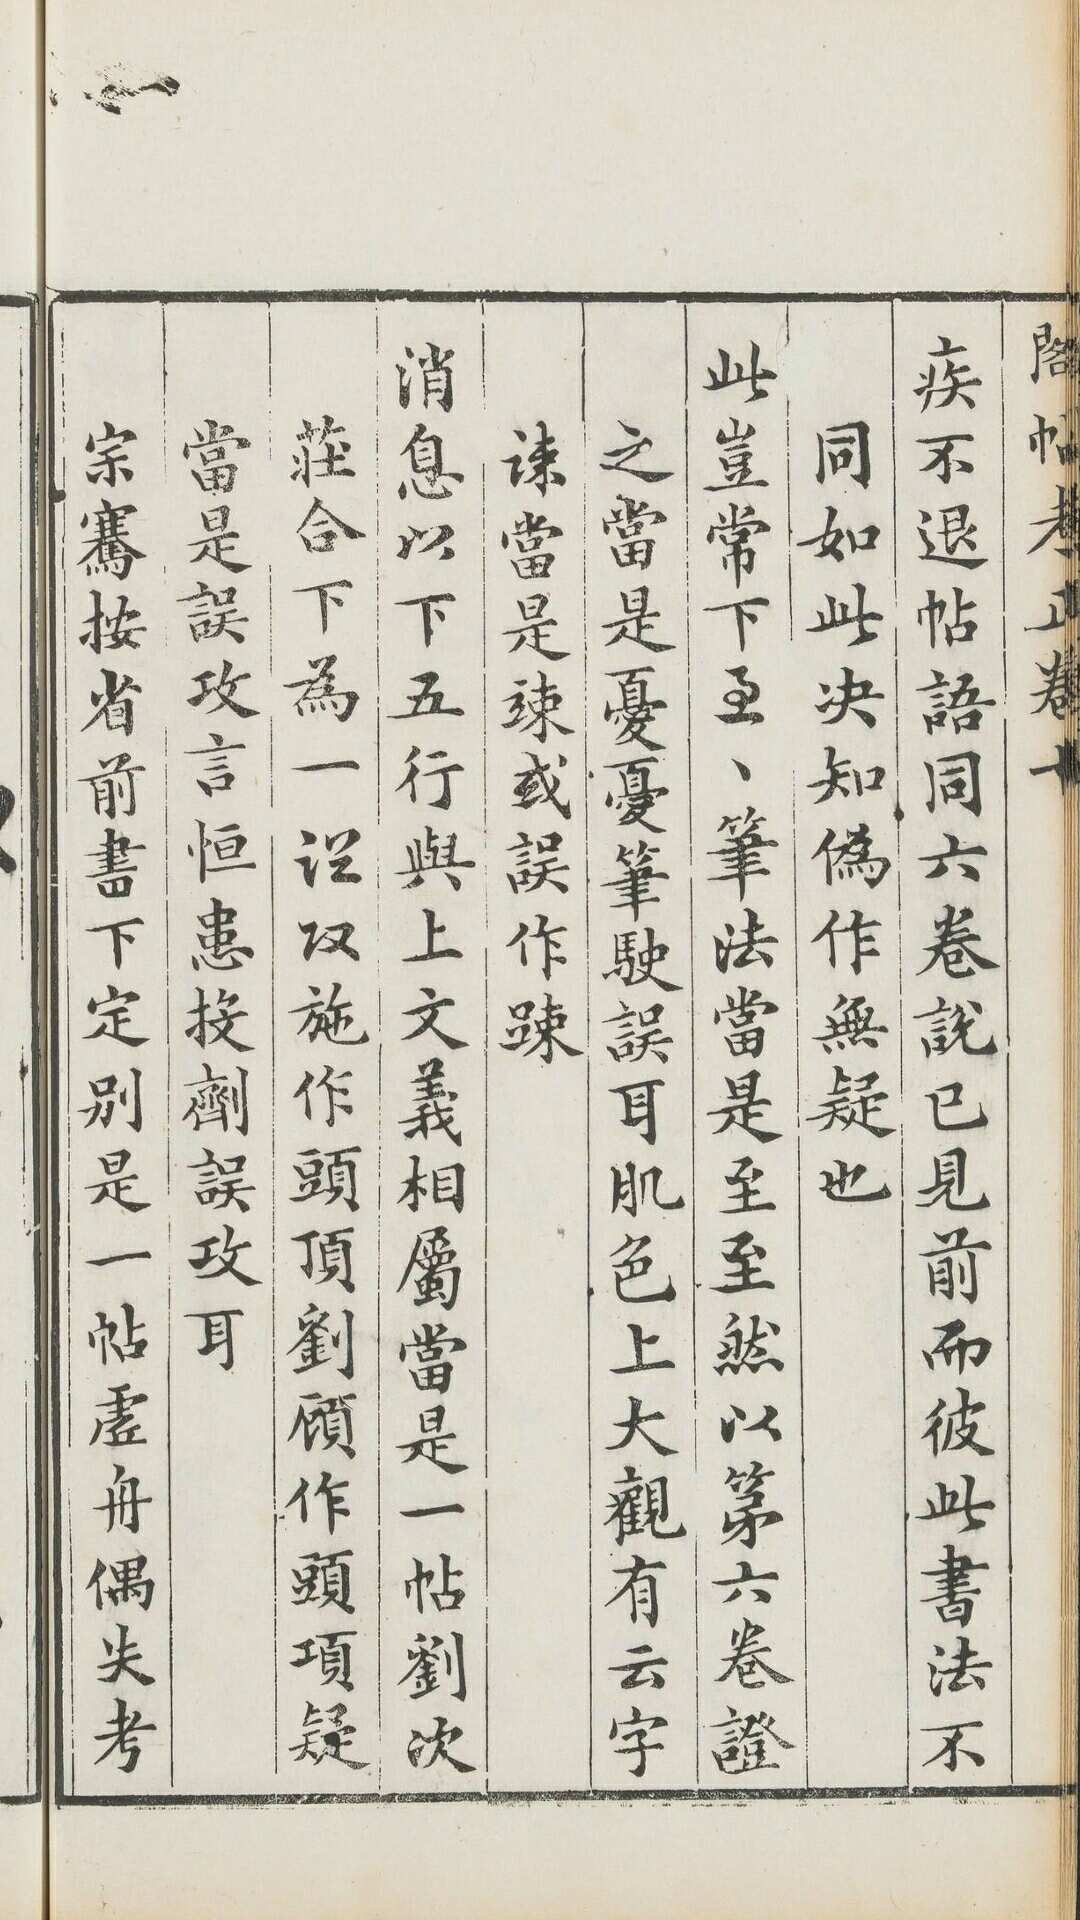 閣帖考正卷十
疾不退帖語同六卷說已見前而彼此書法不
同如此决知僞作無疑也
此豈常下至丶筆法當是至至然以第六卷證
之當是憂憂筆駛誤耳肌色上大觀有云字
誎當是竦或誤作踈
消息以下五行與上文義相屬當是一帖劉次
莊合下為一誤攻施作頭頂劉顧作頭項疑
當是誤攻言恒患投劑誤攻耳
宗騫按省前書下定别是一帖虛舟偶失考